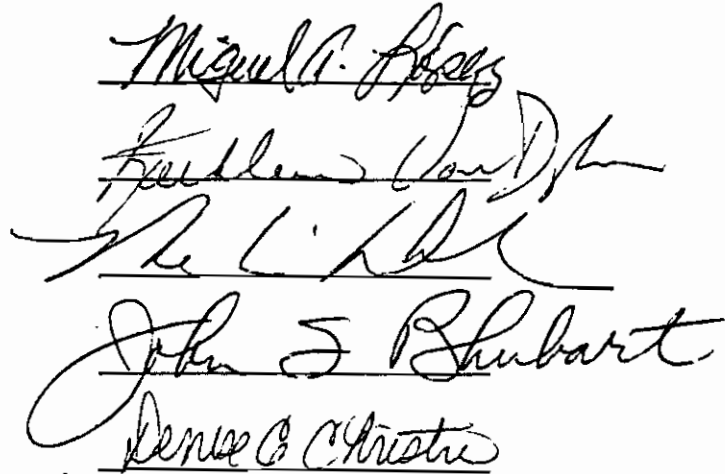 Miguel A. Lopez
Kathleen Van Dyke
John S Rhubart
Denise C Christie